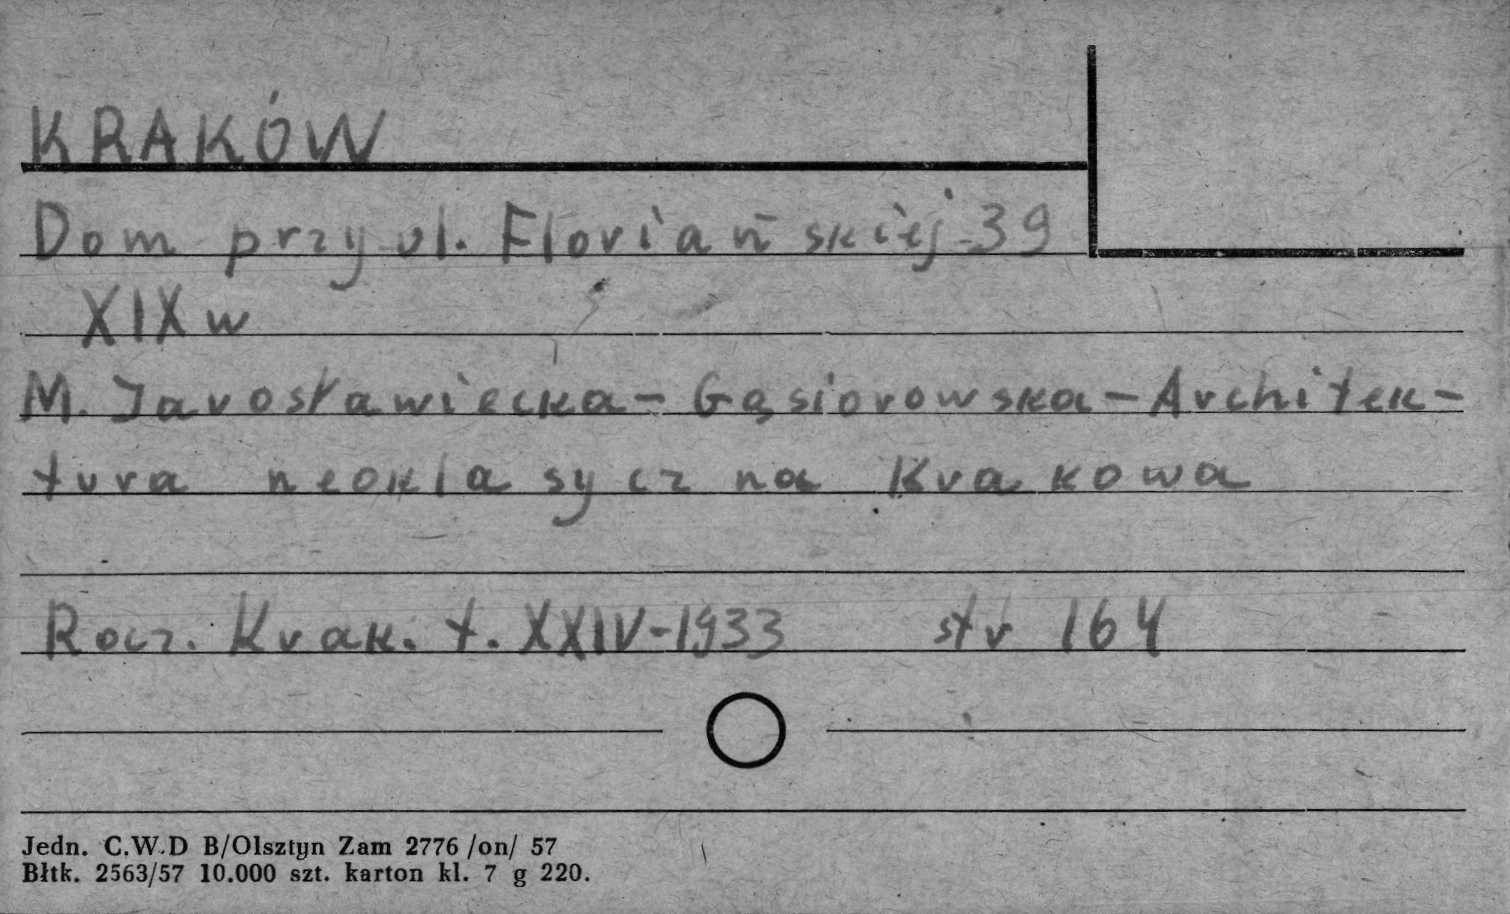 KRAKÓW
Dom przy ul. Floriańskiej 39
XIX w
M. Jarosławiecka - Gąsiorowska - Architek-
tura neoklasyczna Krakowa
Rocz. Krak. t. XXIV - 1933 str 164
Jedn. C.W.D B/Olsztyn Zam 2776 /on/ 57
Błtk. 2563/57 10.000 szt. karton kl. 7 g 220.